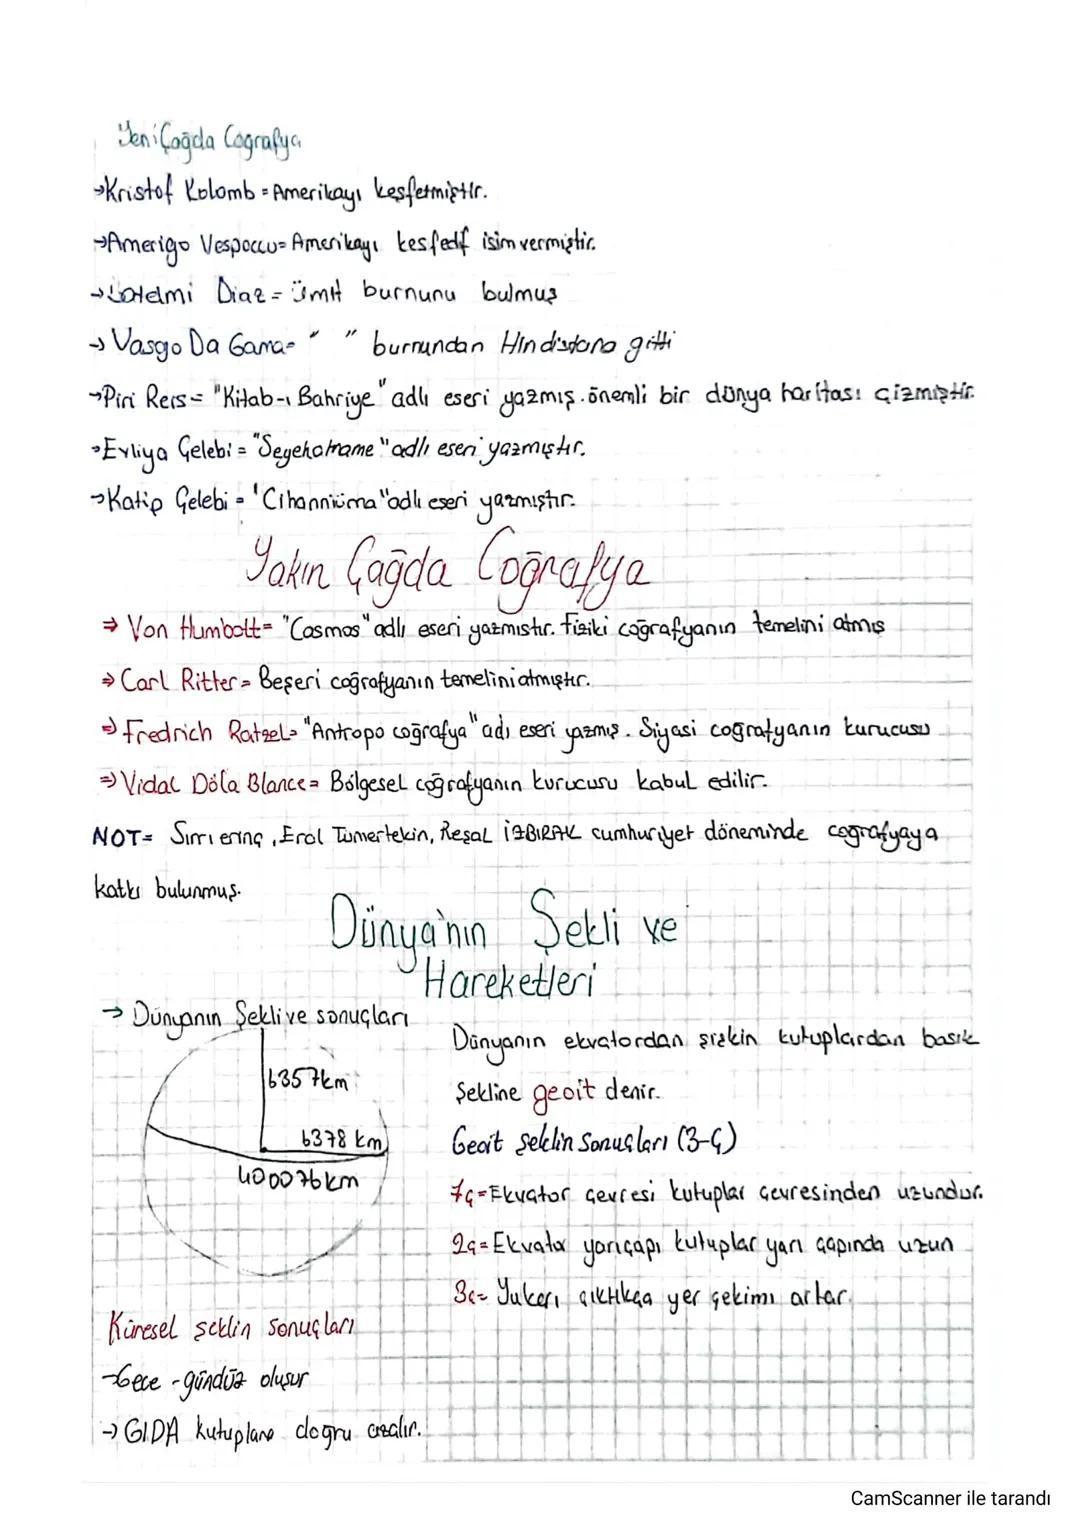 Yeni Çağda Coğrafya
→Kristof Kolomb = Amerikayı keşfetmiştir.
→Amerigo Vespoccu= Amerikayı keşfedif isim vermiştir.
→ Diaz = Ümit burnunu bulmuş
→ Vasgo Da Gama= " " burnundan Hindistana gitti
→Piri Reis = "Kitab-ı Bahriye" adlı eseri yazmış. önemli bir dünya haritası çizmiştir.
→Evliya Çelebi = "Seyehatname" adlı eseri yazmıştır.
→Katip Çelebi = 'Cihannüma" adlı eseri yazmıştır.
Yakın Çağda Coğrafya
⇒ Von Humbolt= "Cosmos" adlı eseri yazmıstır. Fiziki coğrafyanın temelini atmış
⇒ Carl Ritter = Beşeri coğrafyanın temelini atmıştır.
⇒ Fredrich Ratzel= "Antropo coğrafya" adı eseri yazmış. Siyasi coğrafyanın kurucusu
⇒ Vidal Döla Blance = Bölgesel coğrafyanın kurucusu kabul edilir.
NOT= Sırrı erinç, Erol Tümertekin, Reşat İZBIRAK cumhuriyet döneminde coğrafyaya
katkı bulunmuş.
Dünya'nın Şekli ve
Hareketleri
→ Dünyanın Şekli ve sonuçları
6357km
6378 km
400076km
Dünyanın ekvatordan şişkin kutuplardan basık
şekline geoit denir.
Geoit şeklin sonuçları (3-Ç)
1ç=Ekvator çevresi kutuplar çevresinden uzundur.
2ç=Ekvator yarıçapı kutuplar yarı çapında uzun
3ç= Yukarı çıktıkça yer çekimi artar.
Küresel şeklin sonuçları
→Gece - gündüz oluşur
→ GIDA kutuplara doğru azalır.
CamScanner ile tarandı